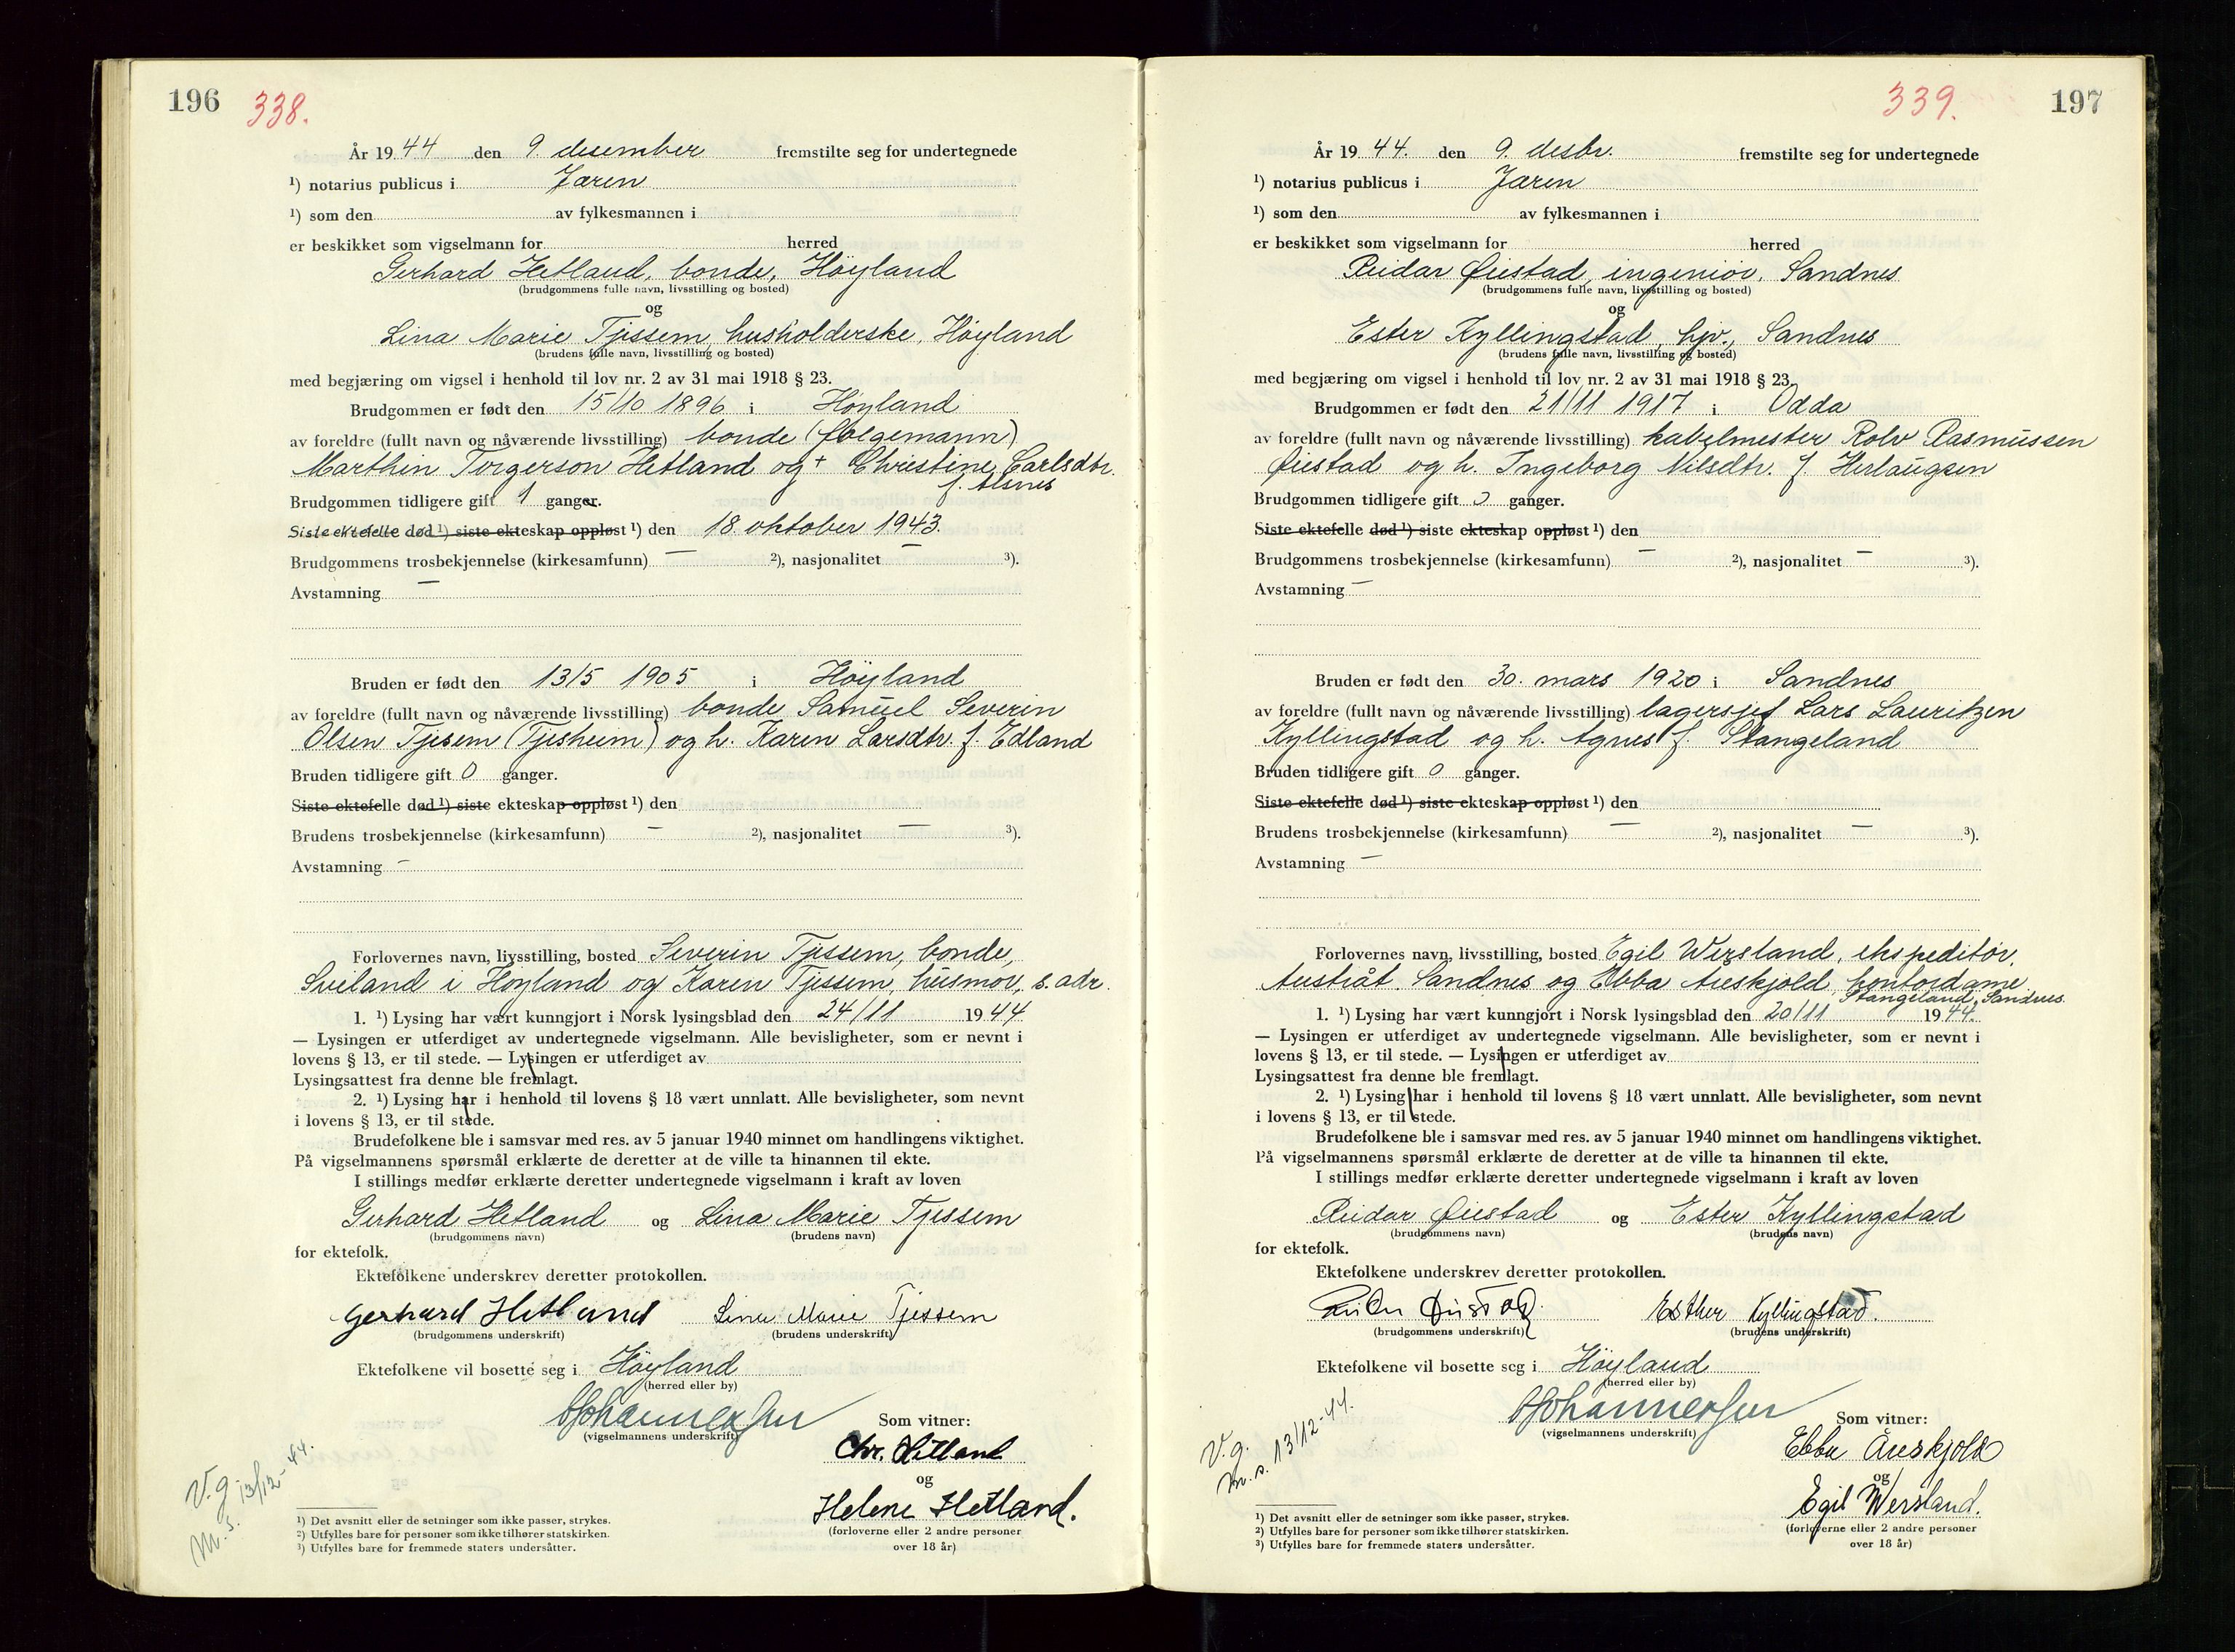 196 338.
År 19 44 den 9. desember fremstilte seg for undertegnede
¹) notarius publicus i Jæren
¹) som den av fylkesmannen i
er beskikket som vigselmann for herred
Gerhard Hetland, bonde, Høyland
(brudgommens fulle navn, livsstilling og bosted)
og
Lina Marie Tjessem, husholderske, Høyland
(brudens fulle navn, livsstilling og bosted)
med begjæring om vigsel i henhold til lov nr. 2 av 31 mai 1918 § 23.
Brudgommen er født den 15/10 1896 i Høyland
av foreldre (fullt navn og nåværende livsstilling) bonde (følgemann)
Marthin Torgerson Hetland og + Christine Carlsdtr.
f. Alsnes
Brudgommen tidligere gift 1 ganger.
Siste ektefelle død ¹) siste ekteskap oppløst ¹) den 18. oktober 1943.
Brudgommens trosbekjennelse (kirkesamfunn) — ²), nasjonalitet — ³).
Avstamning —
Bruden er født den 13/5 1905 i Høyland
av foreldre (fullt navn og nåværende livsstilling) bonde Samuel Severin
Olsen Tjesem (Tjesheim) og h. Karen Larsdtr. f. Edland
Bruden tidligere gift 0 ganger.
Siste ektefelle død ¹) siste ekteskap oppløst ¹) den
Brudens trosbekjennelse (kirkesamfunn) — ²), nasjonalitet — ³).
Avstamning —
Forlovernes navn, livsstilling, bosted Severin Tjessem, bonde,
Sviland i Høyland og Karen Tjessem, husmor, s. adr.
1. ¹) Lysing har vært kunngjort i Norsk lysingsblad den 24/11 19 44
— Lysingen er utferdiget av undertegnede vigselmann. Alle bevisligheter, som er nevnt i
lovens § 13, er til stede. — Lysingen er utferdiget av
Lysingsattest fra denne ble fremlagt.
2. ¹) Lysing har i henhold til lovens § 18 vært unnlatt. Alle bevisligheter, som nevnt
i lovens § 13, er til stede.
Brudefolkene ble i samsvar med res. av 5 januar 1940 minnet om handlingens viktighet.
På vigselmannens spørsmål erklærte de deretter at de ville ta hinannen til ekte.
I stillings medfør erklærte deretter undertegnede vigselmann i kraft av loven
Gerhard Hetland og Lina Marie Tjessem
(brudgommens navn) (brudens navn)
for ektefolk.
Ektefolkene underskrev deretter protokollen.
Gerhard Hetland Lina Marie Tjessem
(brudgommens underskrift) (brudens underskrift)
Ektefolkene vil bosette seg i Høyland
(herred eller by)
Johannessen Som vitner:
(vigselmannens underskrift)
Chr. Hetland
og
Helene Hetland.
(forloverne eller 2 andre personer
over 18 år)
V.g. 13/12-44.
M.s.
¹) Det avsnitt eller de setninger som ikke passer, strykes.
²) Utfylles bare for personer som ikke tilhører statskirken.
³) Utfylles bare for fremmede staters undersåtter.
339. 197
År 19 44. den 9. desbr. fremstilte seg for undertegnede
¹) notarius publicus i Jæren
¹) som den av fylkesmannen i
er beskikket som vigselmann for herred
Reidar Øiestad, ingeniør, Sandnes
(brudgommens fulle navn, livsstilling og bosted)
og
Ester Kyllingstad, hjv., Sandnes
(brudens fulle navn, livsstilling og bosted)
med begjæring om vigsel i henhold til lov nr. 2 av 31 mai 1918 § 23.
Brudgommen er født den 21/11 1917 i Odda
av foreldre (fullt navn og nåværende livsstilling) kabelmester Rolv Rasmussen
Øiestad og h. Ingeborg Nilsdtr. f. Herlaugsen
Brudgommen tidligere gift 0 ganger.
Siste ektefelle død ¹) siste ekteskap oppløst ¹) den
Brudgommens trosbekjennelse (kirkesamfunn) — ²), nasjonalitet — ³).
Avstamning —
Bruden er født den 30. mars 1920 i Sandnes
av foreldre (fullt navn og nåværende livsstilling) lagersjef Lars Lauritzen
Kyllingstad og h. Agnes f. Stangeland
Bruden tidligere gift 0 ganger.
Siste ektefelle død ¹) siste ekteskap oppløst ¹) den
Brudens trosbekjennelse (kirkesamfunn) — ²), nasjonalitet — ³).
Avstamning —
Forlovernes navn, livsstilling, bosted Egil Wersland, ekspeditør,
Austråt, Sandnes og Ebba Aueskjold, kontordame
Stangeland, Sandnes.
1. ¹) Lysing har vært kunngjort i Norsk lysingsblad den 20/11 19 44.
— Lysingen er utferdiget av undertegnede vigselmann. Alle bevisligheter, som er nevnt i
lovens § 13, er til stede. — Lysingen er utferdiget av
Lysingsattest fra denne ble fremlagt.
2. ¹) Lysing har i henhold til lovens § 18 vært unnlatt. Alle bevisligheter, som nevnt
i lovens § 13, er til stede.
Brudefolkene ble i samsvar med res. av 5 januar 1940 minnet om handlingens viktighet.
På vigselmannens spørsmål erklærte de deretter at de ville ta hinannen til ekte.
I stillings medfør erklærte deretter undertegnede vigselmann i kraft av loven
Reidar Øiestad og Ester Kyllingstad
(brudgommens navn) (brudens navn)
for ektefolk.
Ektefolkene underskrev deretter protokollen.
Reidar Øiestad. Esther Kyllingstad.
(brudgommens underskrift) (brudens underskrift)
Ektefolkene vil bosette seg i Høyland
(herred eller by)
Johannessen Som vitner:
(vigselmannens underskrift)
Ebba Aueskjold
og
Egil Wersland.
(forloverne eller 2 andre personer
over 18 år)
V.g.
m.s. 13/12-44.
¹) Det avsnitt eller de setninger som ikke passer, strykes.
²) Utfylles bare for personer som ikke tilhører statskirken.
³) Utfylles bare for fremmede staters undersåtter.